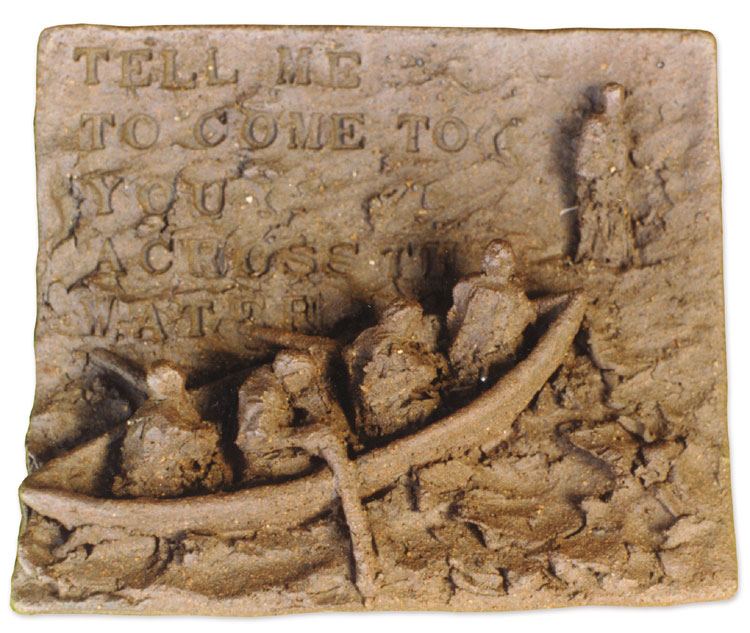 TELL ME
TO COME TO
YOU
ACROSS THE
WATER